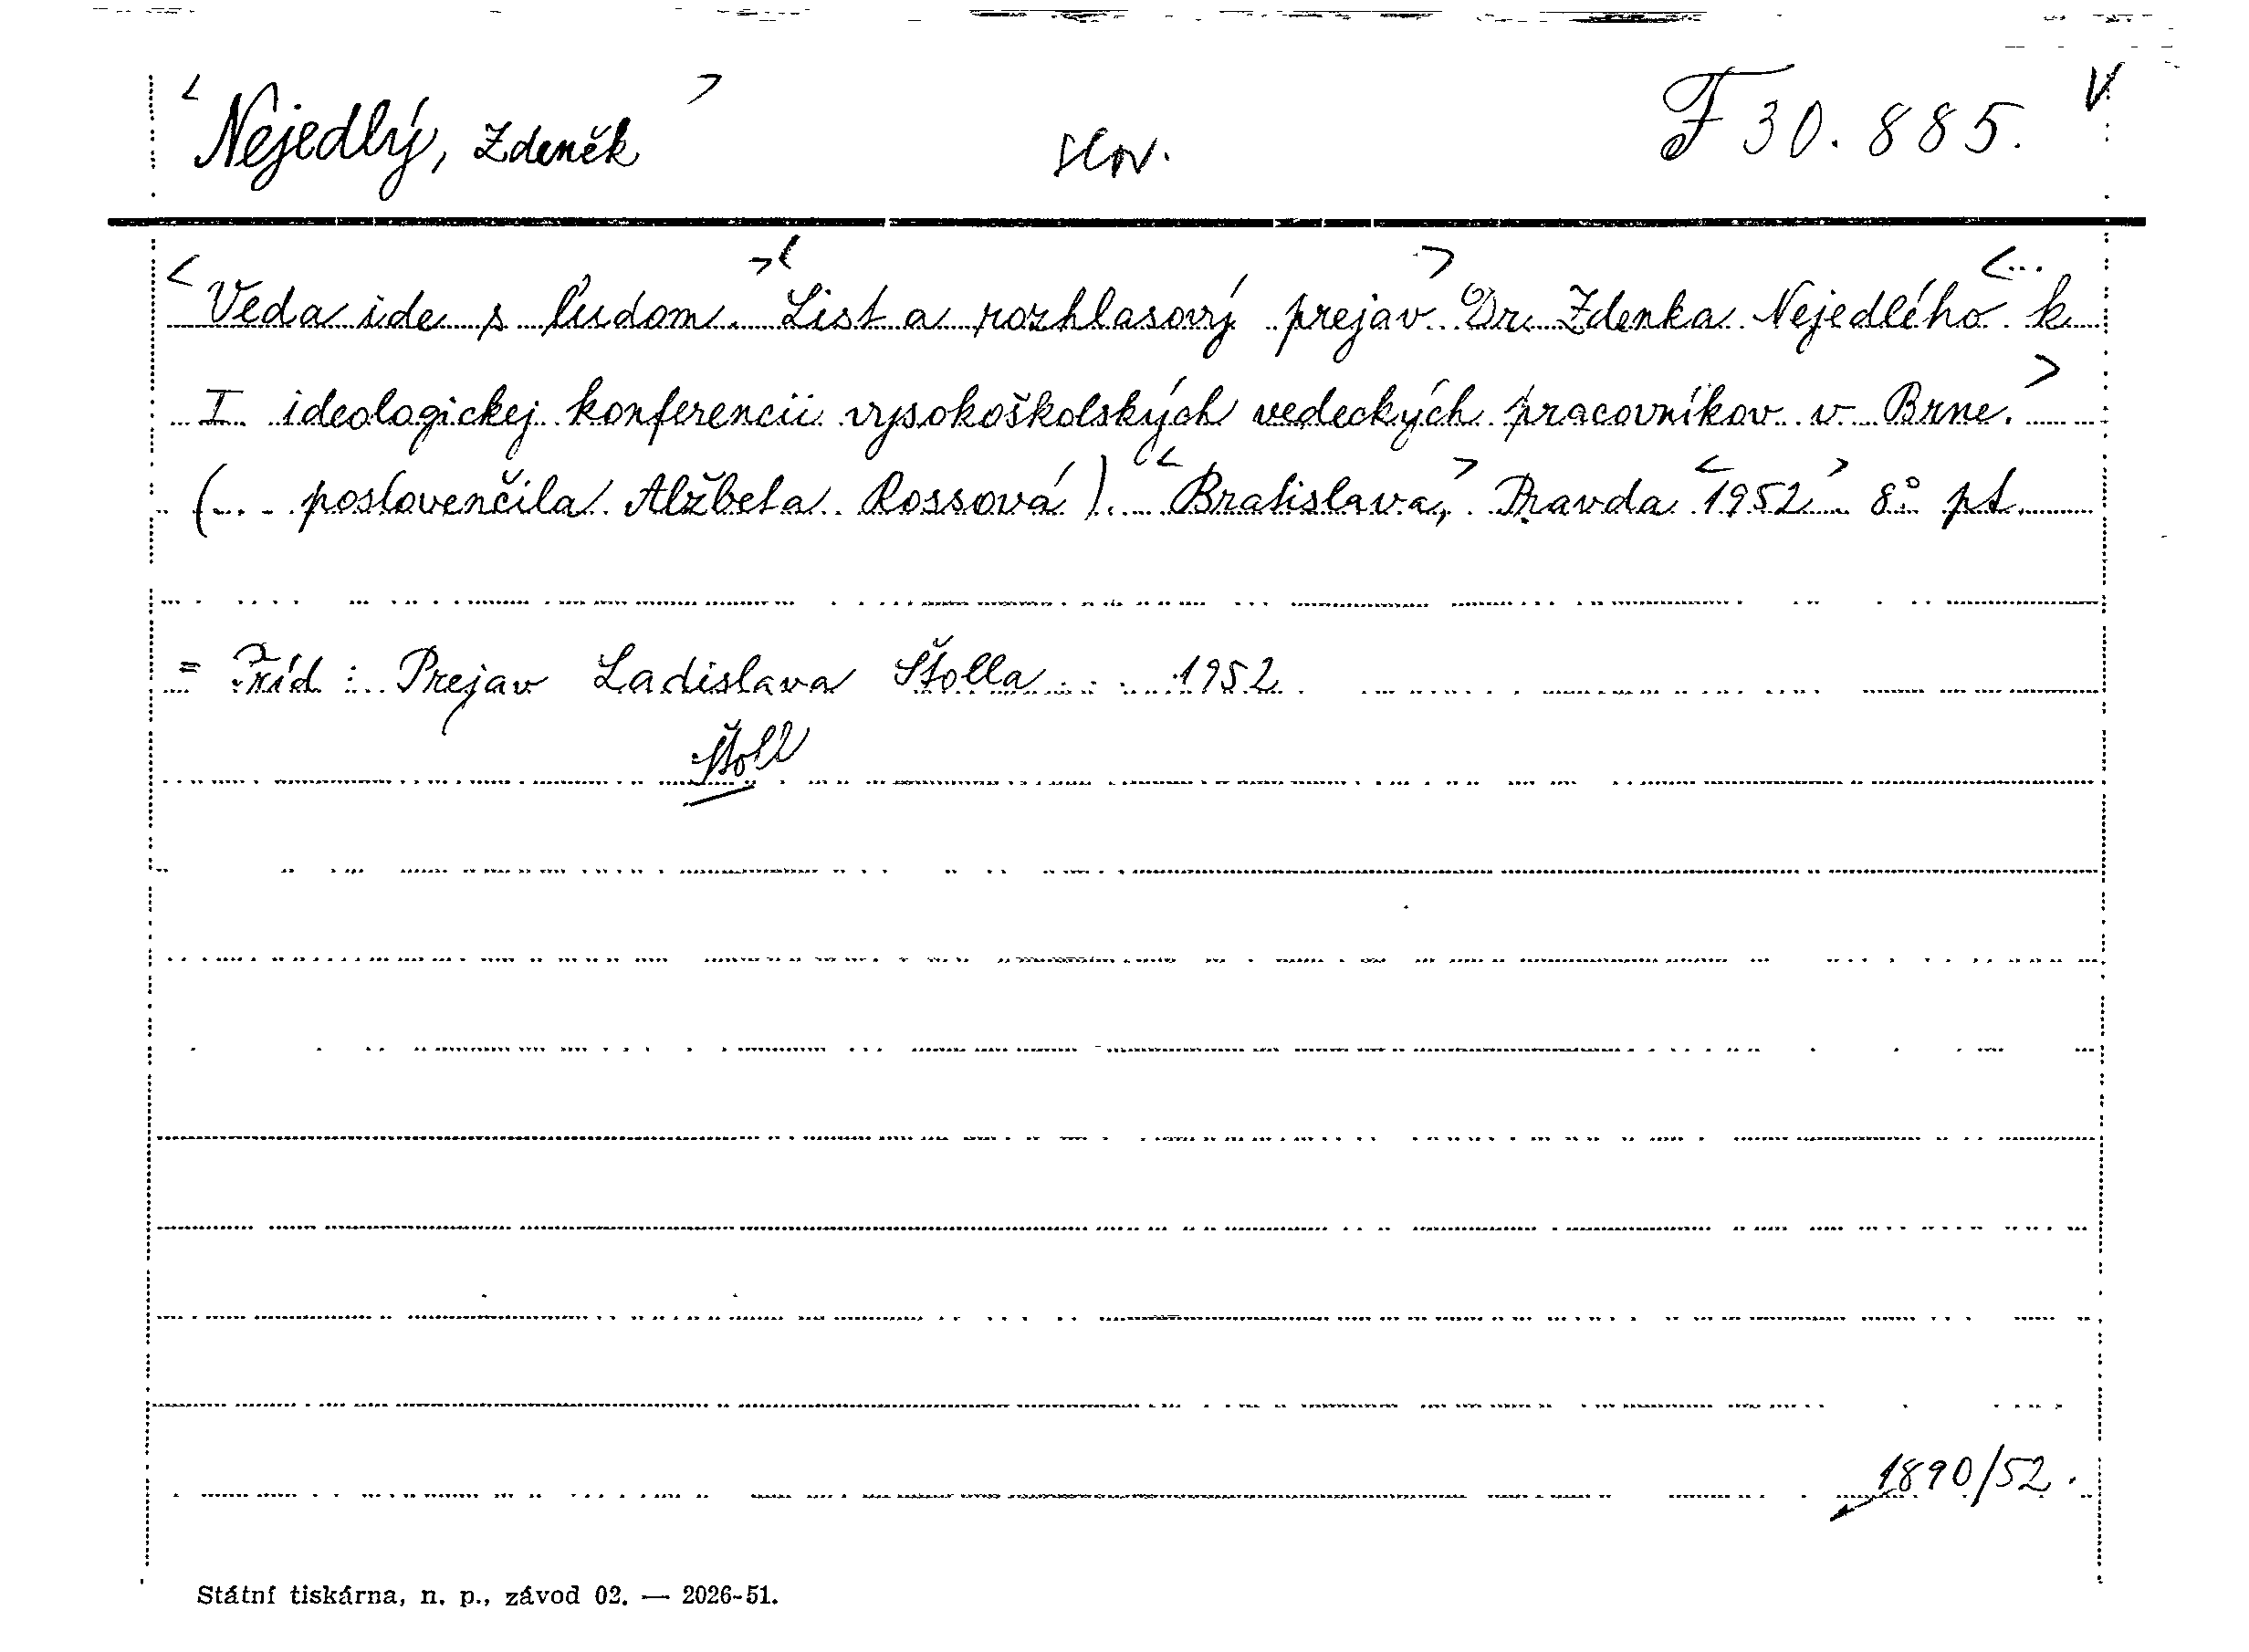 < Nejedlý, Zdeněk > slov. F 30.885. V
< Veda ide s ľudom. >< List a rozhlasový prejav > Dr. Zdenka Nejedlého <... k
I. ideologickej konferencii vysokoškolských vedeckých pracovníkov v Brne. >
(... poslovenčila Alžbeta Rossová). < Bratislava, > Pravda < 1952 > 8° pt.
= Příd : Prejav Ladislava Štolla ... 1952
Štoll
1890/52.
Státní tiskárna, n. p., závod 02. — 2026-51.